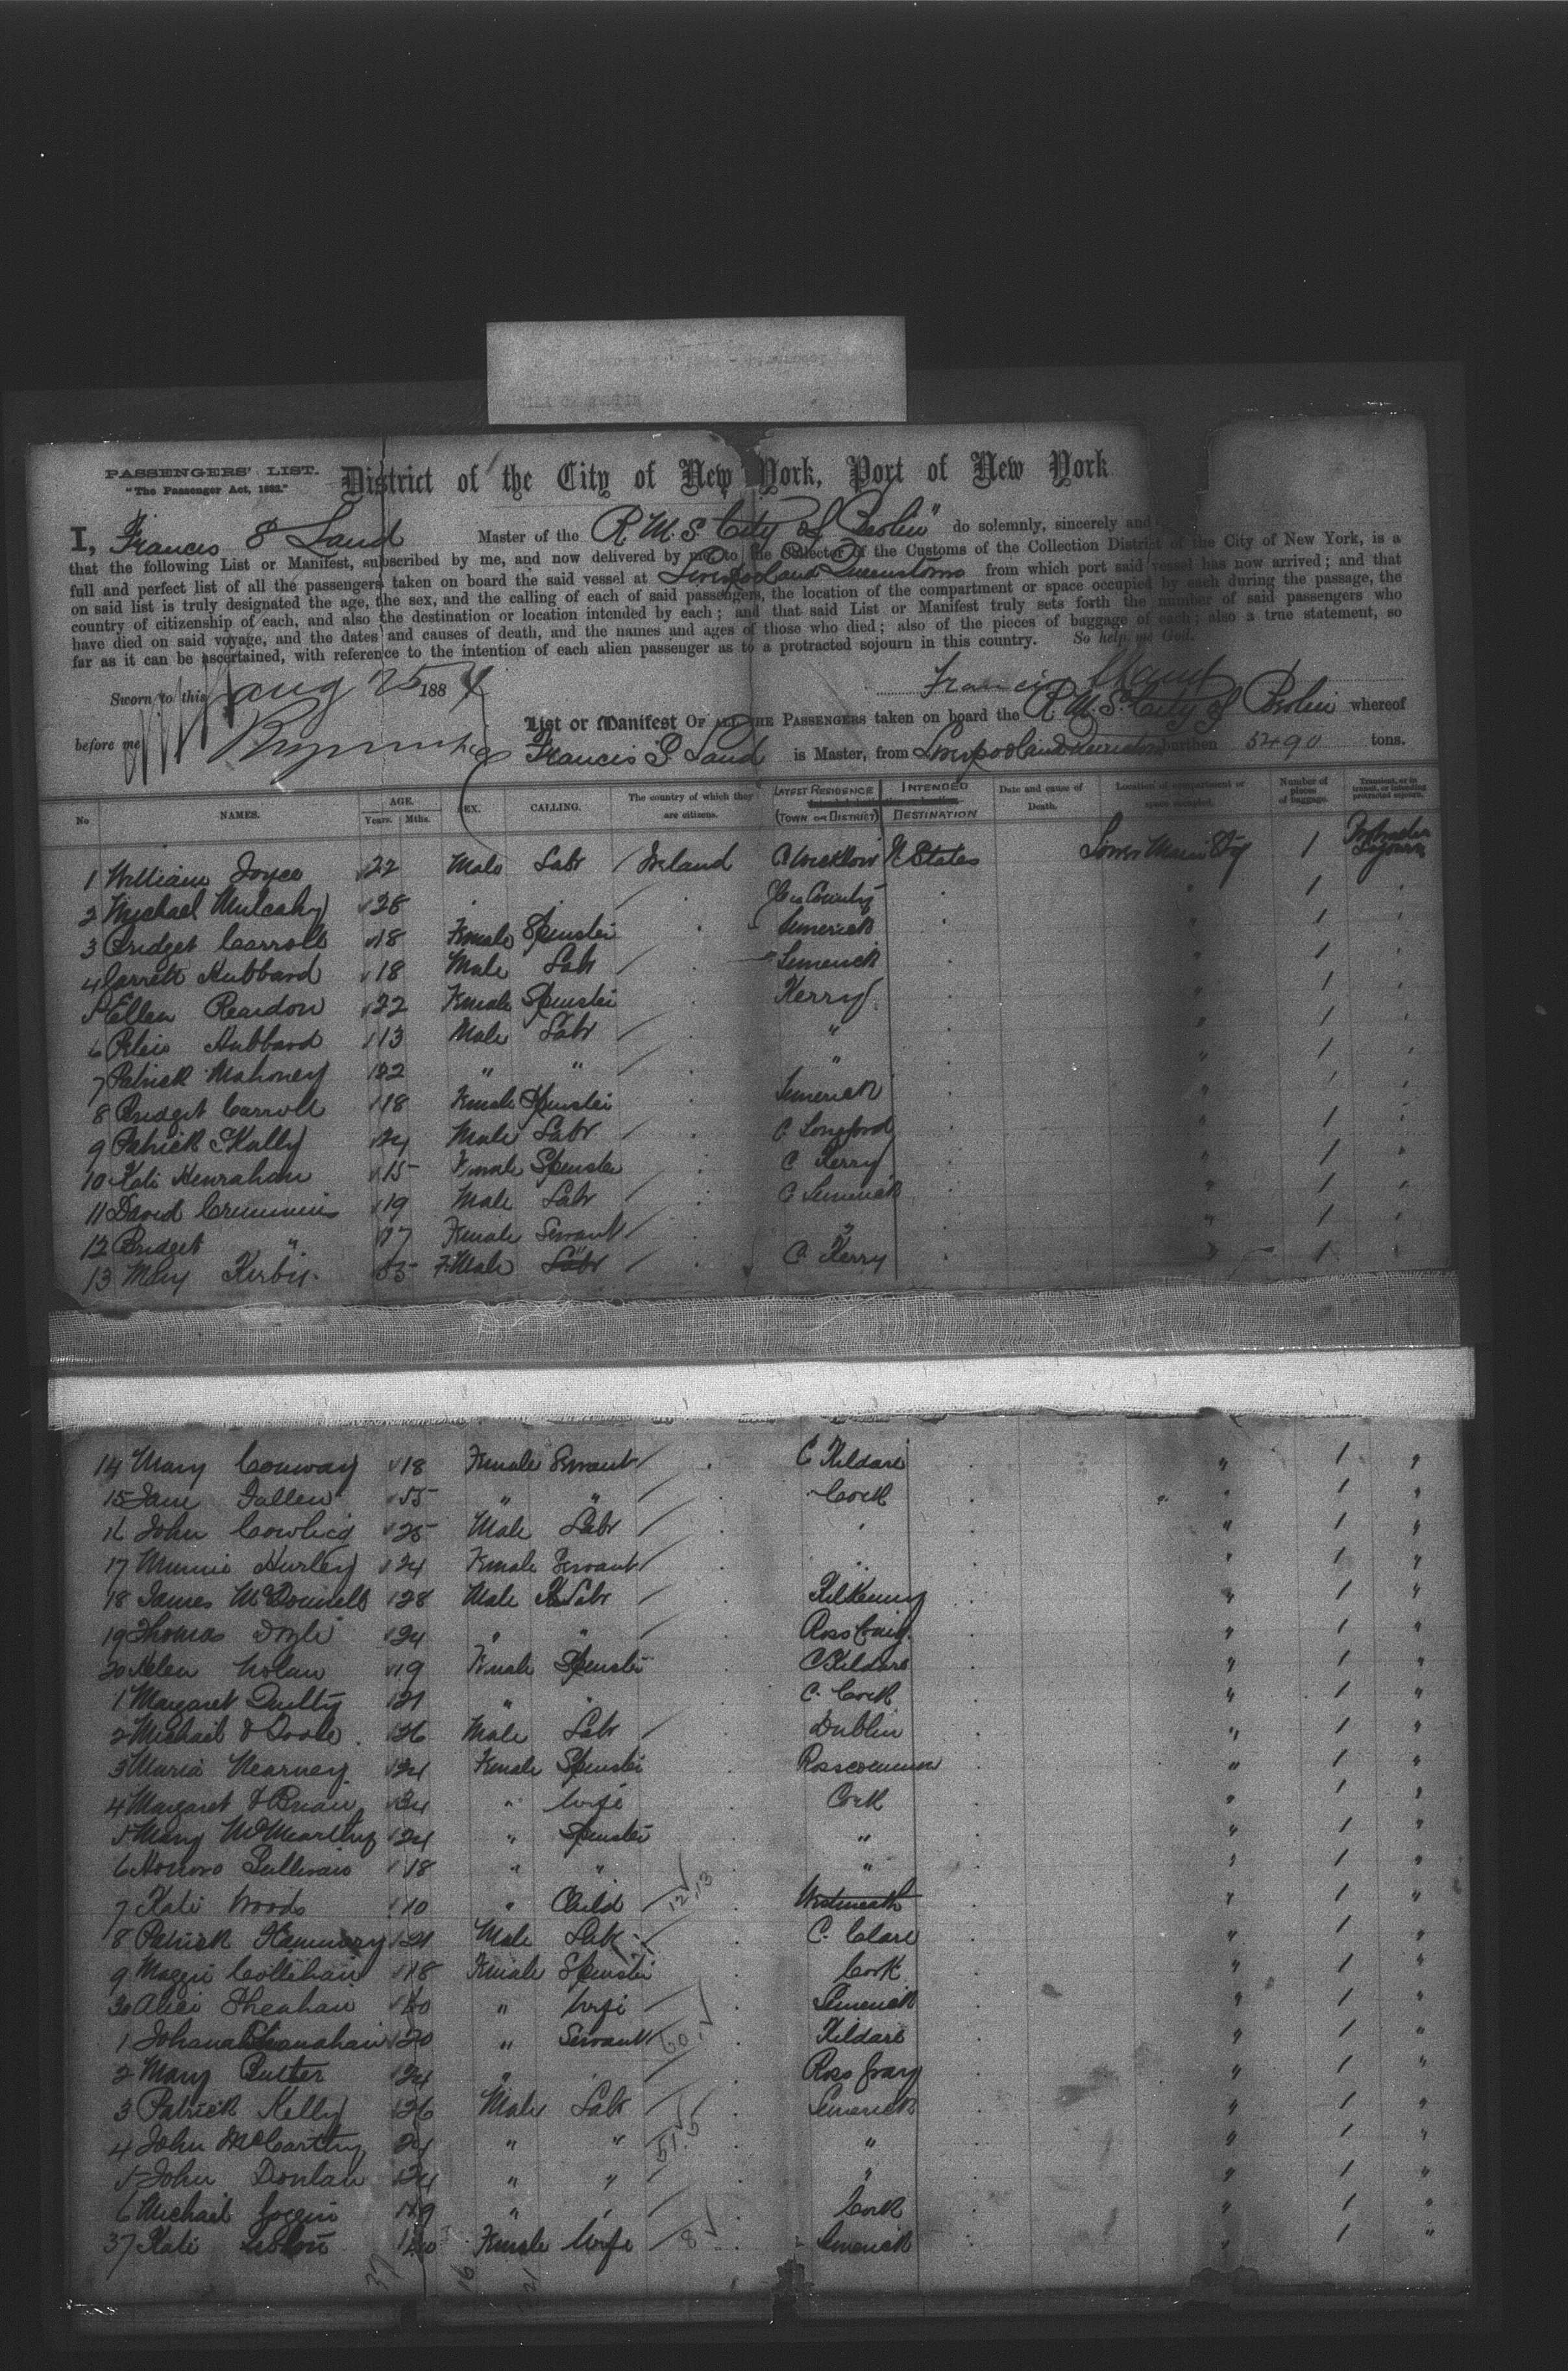 PASSENGERS' LIST.
"The Passenger Act, 1882."
District of the City of New York, Port of New York
I, Francis S Land Master of the R.M.S. "City of Berlin" do solemnly, sincerely and
that the following List or Manifest, subscribed by me, and now delivered by me to the Collector of the Customs of the Collection District of the City of New York, is a
full and perfect list of all the passengers taken on board the said vessel at Liverpool and Queenstown from which port said vessel has now arrived; and that
on said list is truly designated the age, the sex, and the calling of each of said passengers, the location of the compartment or space occupied by each during the passage, the
country of citizenship of each, and also the destination or location intended by each; and that said List or Manifest truly sets forth the number of said passengers who
have died on said voyage, and the dates and causes of death, and the names and ages of those who died; also of the pieces of baggage of each; also a true statement, so
far as it can be ascertained, with reference to the intention of each alien passenger as to a protracted sojourn in this country. So help me God.
Sworn to this Aug 25 188 Francis S Land
before me
List or Manifest OF ALL THE PASSENGERS taken on board the R.M.S. City of Berlin whereof
Francis S. Land is Master, from Liverpool and Queenstown burthen 5490 tons.
No NAMES. AGE. Years. Mths. SEX. CALLING. The country of which they are citizens. LATEST RESIDENCE (TOWN OR DISTRICT) INTENDED DESTINATION Date and cause of Death. Location of compartment or space occupied. Number of pieces of baggage. Transient, or in transit, or intending protracted sojourn.
1 William Joyce 22 Male Labr Ireland C Wicklow U States 1 Protracted Sojourn
2 Michael Mulcahy 28 1
3 Bridget Carroll 18 Female Spinster Limerick 1
4 Garrett Hubbard 18 Male Labr Limerick 1
5 Ellen Reardon 22 Female Spinster Kerry 1
6 Hubbard 13 Male Labr " 1
7 Patrick Mahoney 22 " " " 1
8 Bridget Carroll 18 Female Spinster Limerick
9 Patrick Skully 24 Male Labr C. Longford 1
10 Kate Henrahan 15 Female Spinster C Kerry 1
11 David Cremmins 19 Male Labr C Limerick 1
12 Bridget " 17 Female Servant " 1
13 Mary Kirby 55 FMale Labr C. Kerry 1
14 Mary Conway 18 Female Servant C Kildare " 1 "
15 Jane Fallen 55 " " Cork " 1 "
16 John 25 Male Labr " 1 "
17 Minnie Hurley 24 Female Servant " 1 "
18 James McDonnell 28 Male Labr Kilkenny " 1 "
19 Thomas Doyle 24 " " " 1 "
20 Nolan 19 Female Spinster C Kildare " 1 "
1 Margaret Quilty 21 " " C. Cork " 1 "
2 Michael O'Toole 26 Male Labr Dublin " 1 "
3 Maria Kearney 24 Female Spinster Roscommon " 1 "
4 Margaret O'Brien 34 " Wife Cork " 1 "
5 Mary 24 " Spinster " " 1 "
6 Honora Sullivan 18 " " " " 1 "
7 Kate Woods 10 " Child Westmeath " 1 "
8 Patrick 21 Male Labr C. Clare " 1 "
9 Maggie 18 Female Spinster Cork " 1 "
30 Alice Sheahan Wife Limerick " 1 "
1 Johana Shanahan 20 " Servant Kildare " 1 "
2 Mary 24 " " 1 "
3 Patrick Kelly 26 Male Labr Limerick " 1 "
4 John McCarthy 24 " " " " 1 "
5 John Donlan 24 " " " " 1 "
6 Michael Goggin 19 " Cork " 1 "
37 Kate Female Wife Limerick " 1 "